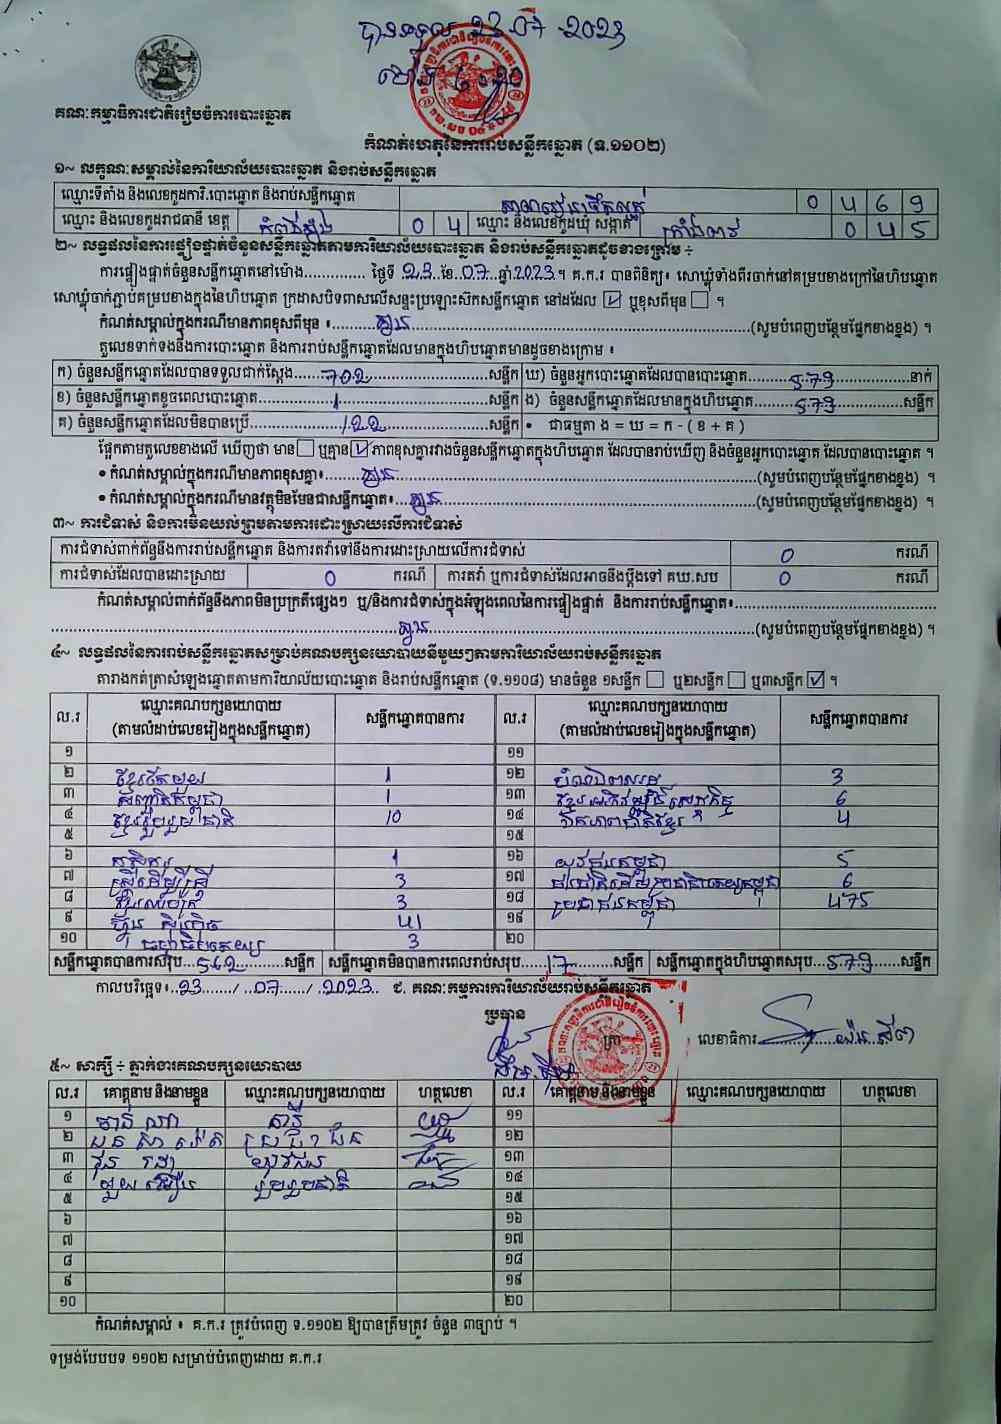 បានទទួល 23 07 2023
ម៉ោង
គណៈកម្មាធិការជាតិរៀបចំការបោះឆ្នោត
កំណត់ហេតុនៃការរាប់សន្លឹកឆ្នោត (ទ.១១០២)
១~ លក្ខណៈសម្គាល់នៃការិយាល័យបោះឆ្នោត និងរាប់សន្លឹកឆ្នោត
ឈ្មោះទីតាំង និងលេខកូដការិ.បោះឆ្នោត និងរាប់សន្លឹកឆ្នោត 0 4 6 9
ឈ្មោះ និងលេខកូដរាជធានី ខេត្ត កំពង់ស្ពឺ 0 4 ឈ្មោះ និងលេខកូដឃុំ សង្កាត់ 0 4 5
២~ លទ្ធផលនៃការផ្ទៀងផ្ទាត់ចំនួនសន្លឹកឆ្នោតតាមការិយាល័យបោះឆ្នោត និងរាប់សន្លឹកឆ្នោតដូចខាងក្រោម ÷
ការផ្ទៀងផ្ទាត់ចំនួនសន្លឹកឆ្នោតនៅម៉ោង.............. ថ្ងៃទី 23 ខែ..07..ឆ្នាំ.2023.។ គ.ក.រ បានពិនិត្យ៖ សោឃ្លុំទាំងពីរចាក់នៅគម្របខាងក្រៅនៃហិបឆ្នោត
សោឃ្លុំចាក់ភ្ជាប់គម្របខាងក្នុងនៃហិបឆ្នោត ក្រដាសបិទពាសលើសន្ទះប្រឡោះសិកសន្លឹកឆ្នោត នៅដដែល ☑ ឬខុសពីមុន ☐ ។
កំណត់សម្គាល់ក្នុងករណីមានភាពខុសពីមុន ៖.......... គ្មាន ..........(សូមបំពេញបន្ថែមផ្នែកខាងខ្នង) ។
តួលេខទាក់ទងនឹងការបោះឆ្នោត និងការរាប់សន្លឹកឆ្នោតដែលមានក្នុងហិបឆ្នោតមានដូចខាងក្រោម ៖
ក) ចំនួនសន្លឹកឆ្នោតដែលបានទទួលជាក់ស្តែង.......702..........សន្លឹក ឃ) ចំនួនអ្នកបោះឆ្នោតដែលបានបោះឆ្នោត..........579..........នាក់
ខ) ចំនួនសន្លឹកឆ្នោតខូចពេលបោះឆ្នោត..........1..........សន្លឹក ង) ចំនួនសន្លឹកឆ្នោតដែលមានក្នុងហិបឆ្នោត..........579..........សន្លឹក
គ) ចំនួនសន្លឹកឆ្នោតដែលមិនបានប្រើ..........122..........សន្លឹក • ជាធម្មតា ង = ឃ = ក - ( ខ + គ )
ផ្អែកតាមតួលេខខាងលើ ឃើញថា មាន☐ ឬគ្មាន☑ ភាពខុសគ្នារវាងចំនួនសន្លឹកឆ្នោតក្នុងហិបឆ្នោត ដែលបានរាប់ឃើញ និងចំនួនអ្នកបោះឆ្នោត ដែលបានបោះឆ្នោត ។
• កំណត់សម្គាល់ក្នុងករណីមានភាពខុសគ្នា៖.......... គ្មាន ..........(សូមបំពេញបន្ថែមផ្នែកខាងខ្នង) ។
• កំណត់សម្គាល់ក្នុងករណីមានវត្ថុមិនមែនជាសន្លឹកឆ្នោត៖... គ្មាន ..........(សូមបំពេញបន្ថែមផ្នែកខាងខ្នង) ។
៣~ ការជំទាស់ និងការមិនយល់ព្រមតាមការដោះស្រាយលើការជំទាស់
ការជំទាស់ពាក់ព័ន្ធនឹងការរាប់សន្លឹកឆ្នោត និងការតវ៉ាទៅនឹងការដោះស្រាយលើការជំទាស់ 0 ករណី
ការជំទាស់ដែលបានដោះស្រាយ 0 ករណី ការតវ៉ា ឬការជំទាស់ដែលអាចនឹងប្តឹងទៅ គឃ.សប 0 ករណី
កំណត់សម្គាល់ពាក់ព័ន្ធនឹងភាពមិនប្រក្រតីផ្សេងៗ ឬ/និងការជំទាស់ក្នុងអំឡុងពេលនៃការផ្ទៀងផ្ទាត់ និងការរាប់សន្លឹកឆ្នោត៖..........
.......... គ្មាន ..........(សូមបំពេញបន្ថែមផ្នែកខាងខ្នង) ។
៤~ លទ្ធផលនៃការរាប់សន្លឹកឆ្នោតសម្រាប់គណបក្សនយោបាយនីមួយៗតាមការិយាល័យរាប់សន្លឹកឆ្នោត
តារាងកត់ត្រាសំឡេងឆ្នោតតាមការិយាល័យបោះឆ្នោត និងរាប់សន្លឹកឆ្នោត (ទ.១១០៨) មានចំនួន ១សន្លឹក ☐ ឬ២សន្លឹក ☐ ឬ៣សន្លឹក ☑ ។
ល.រ ឈ្មោះគណបក្សនយោបាយ សន្លឹកឆ្នោតបានការ ល.រ ឈ្មោះគណបក្សនយោបាយ សន្លឹកឆ្នោតបានការ
(តាមលំដាប់លេខរៀងក្នុងសន្លឹកឆ្នោត) (តាមលំដាប់លេខរៀងក្នុងសន្លឹកឆ្នោត)
១ ១១
២ ខ្មែរតែមួយ 1 ១២ 3
៣ សញ្ជាតិកម្ពុជា 1 ១៣ ខ្មែរអភិវឌ្ឍន៍សេដ្ឋកិច្ច 6
៤ ខ្មែររួបរួមជាតិ 10 ១៤ ឯកភាពជាតិខ្មែរ 4
៥ ១៥
៦ កសិករ 1 ១៦ យុវជនកម្ពុជា 5
៧ ស្ត្រីដើម្បីស្ត្រី 3 ១៧ 6
៨ 3 ១៨ ប្រជាជនកម្ពុជា 475
៩ ហ្វ៊ុនស៊ិនប៉ិច 41 ១៩
១០ ធម្មាធិបតេយ្យ 3 ២០
សន្លឹកឆ្នោតបានការសរុប..562..........សន្លឹក សន្លឹកឆ្នោតមិនបានការពេលរាប់សរុប.....17.......សន្លឹក សន្លឹកឆ្នោតក្នុងហិបឆ្នោតសរុប...579......សន្លឹក
កាលបរិច្ឆេទ៖..23......./...07....../..2023.. ជ. គណៈកម្មការការិយាល័យរាប់សន្លឹកឆ្នោត
ប្រធាន
ត្រា លេខាធិការ
៥~ សាក្សី ÷ ភ្នាក់ងារគណបក្សនយោបាយ
ល.រ គោត្តនាម និងនាមខ្លួន ឈ្មោះគណបក្សនយោបាយ ហត្ថលេខា ល.រ គោត្តនាម និងនាមខ្លួន ឈ្មោះគណបក្សនយោបាយ ហត្ថលេខា
១ ១១
២ ប្រជាជន ១២
៣ យុវជន ១៣
៤ រួបរួមជាតិ ១៤
៥ ១៥
៦ ១៦
៧ ១៧
៨ ១៨
៩ ១៩
១០ ២០
កំណត់សម្គាល់ ៖ គ.ក.រ ត្រូវបំពេញ ទ.១១០២ ឱ្យបានត្រឹមត្រូវ ចំនួន ៣ច្បាប់ ។
ទម្រង់បែបបទ ១១០២ សម្រាប់បំពេញដោយ គ.ក.រ